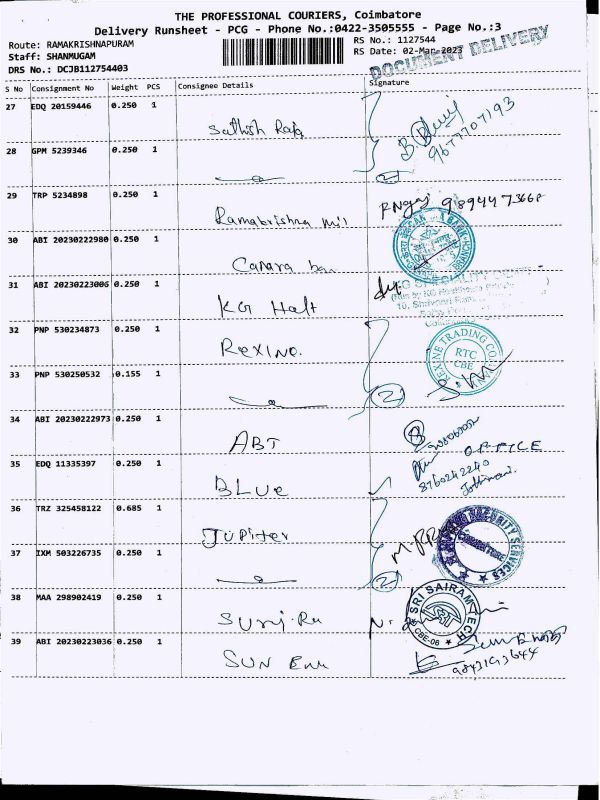 THE PROFESSIONAL COURIERS, Coimbatore
Delivery Runsheet - PCG - Phone No.:0422-3505555 - Page No.:3
Route: RAMAKRISHNAPURAM
RS No.: 1127544
Staff: SHANMUGAM
RS Date: 02-Mar-2023
DRS No.: DCJB112754403
DOCUMENT DELIVERY
S No Consignment No Weight PCS Consignee Details Signature
27 EDQ 20159446 0.250 1
Sathish Raja
9677707193
28 GPM 5239346 0.250 1
2
29 TRP 5234898 0.250 1
Ramakrishna mil
30 ABI 20230222980 0.250 1
Canara ban
31 ABI 20230223006 0.250 1
KG Halt
32 PNP 530234873 0.250 1
Rexino.
REXINE TRADING CO.
RTC
CBE
33 PNP 530250532 0.155 1
2
34 ABI 20230222973 0.250 1
ABT
OFFICE
35 EDQ 11335397 0.250 1
BLUE
8760242240
36 TRZ 325458122 0.685 1
Jupiter
SECURITY SERVICES
COIMBATORE
37 IXM 503226735 0.250 1
2
38 MAA 298902419 0.250 1
SRI SAIRAM TECH
CBE-06
39 ABI 20230223036 0.250 1
SUN Enn
9843193644